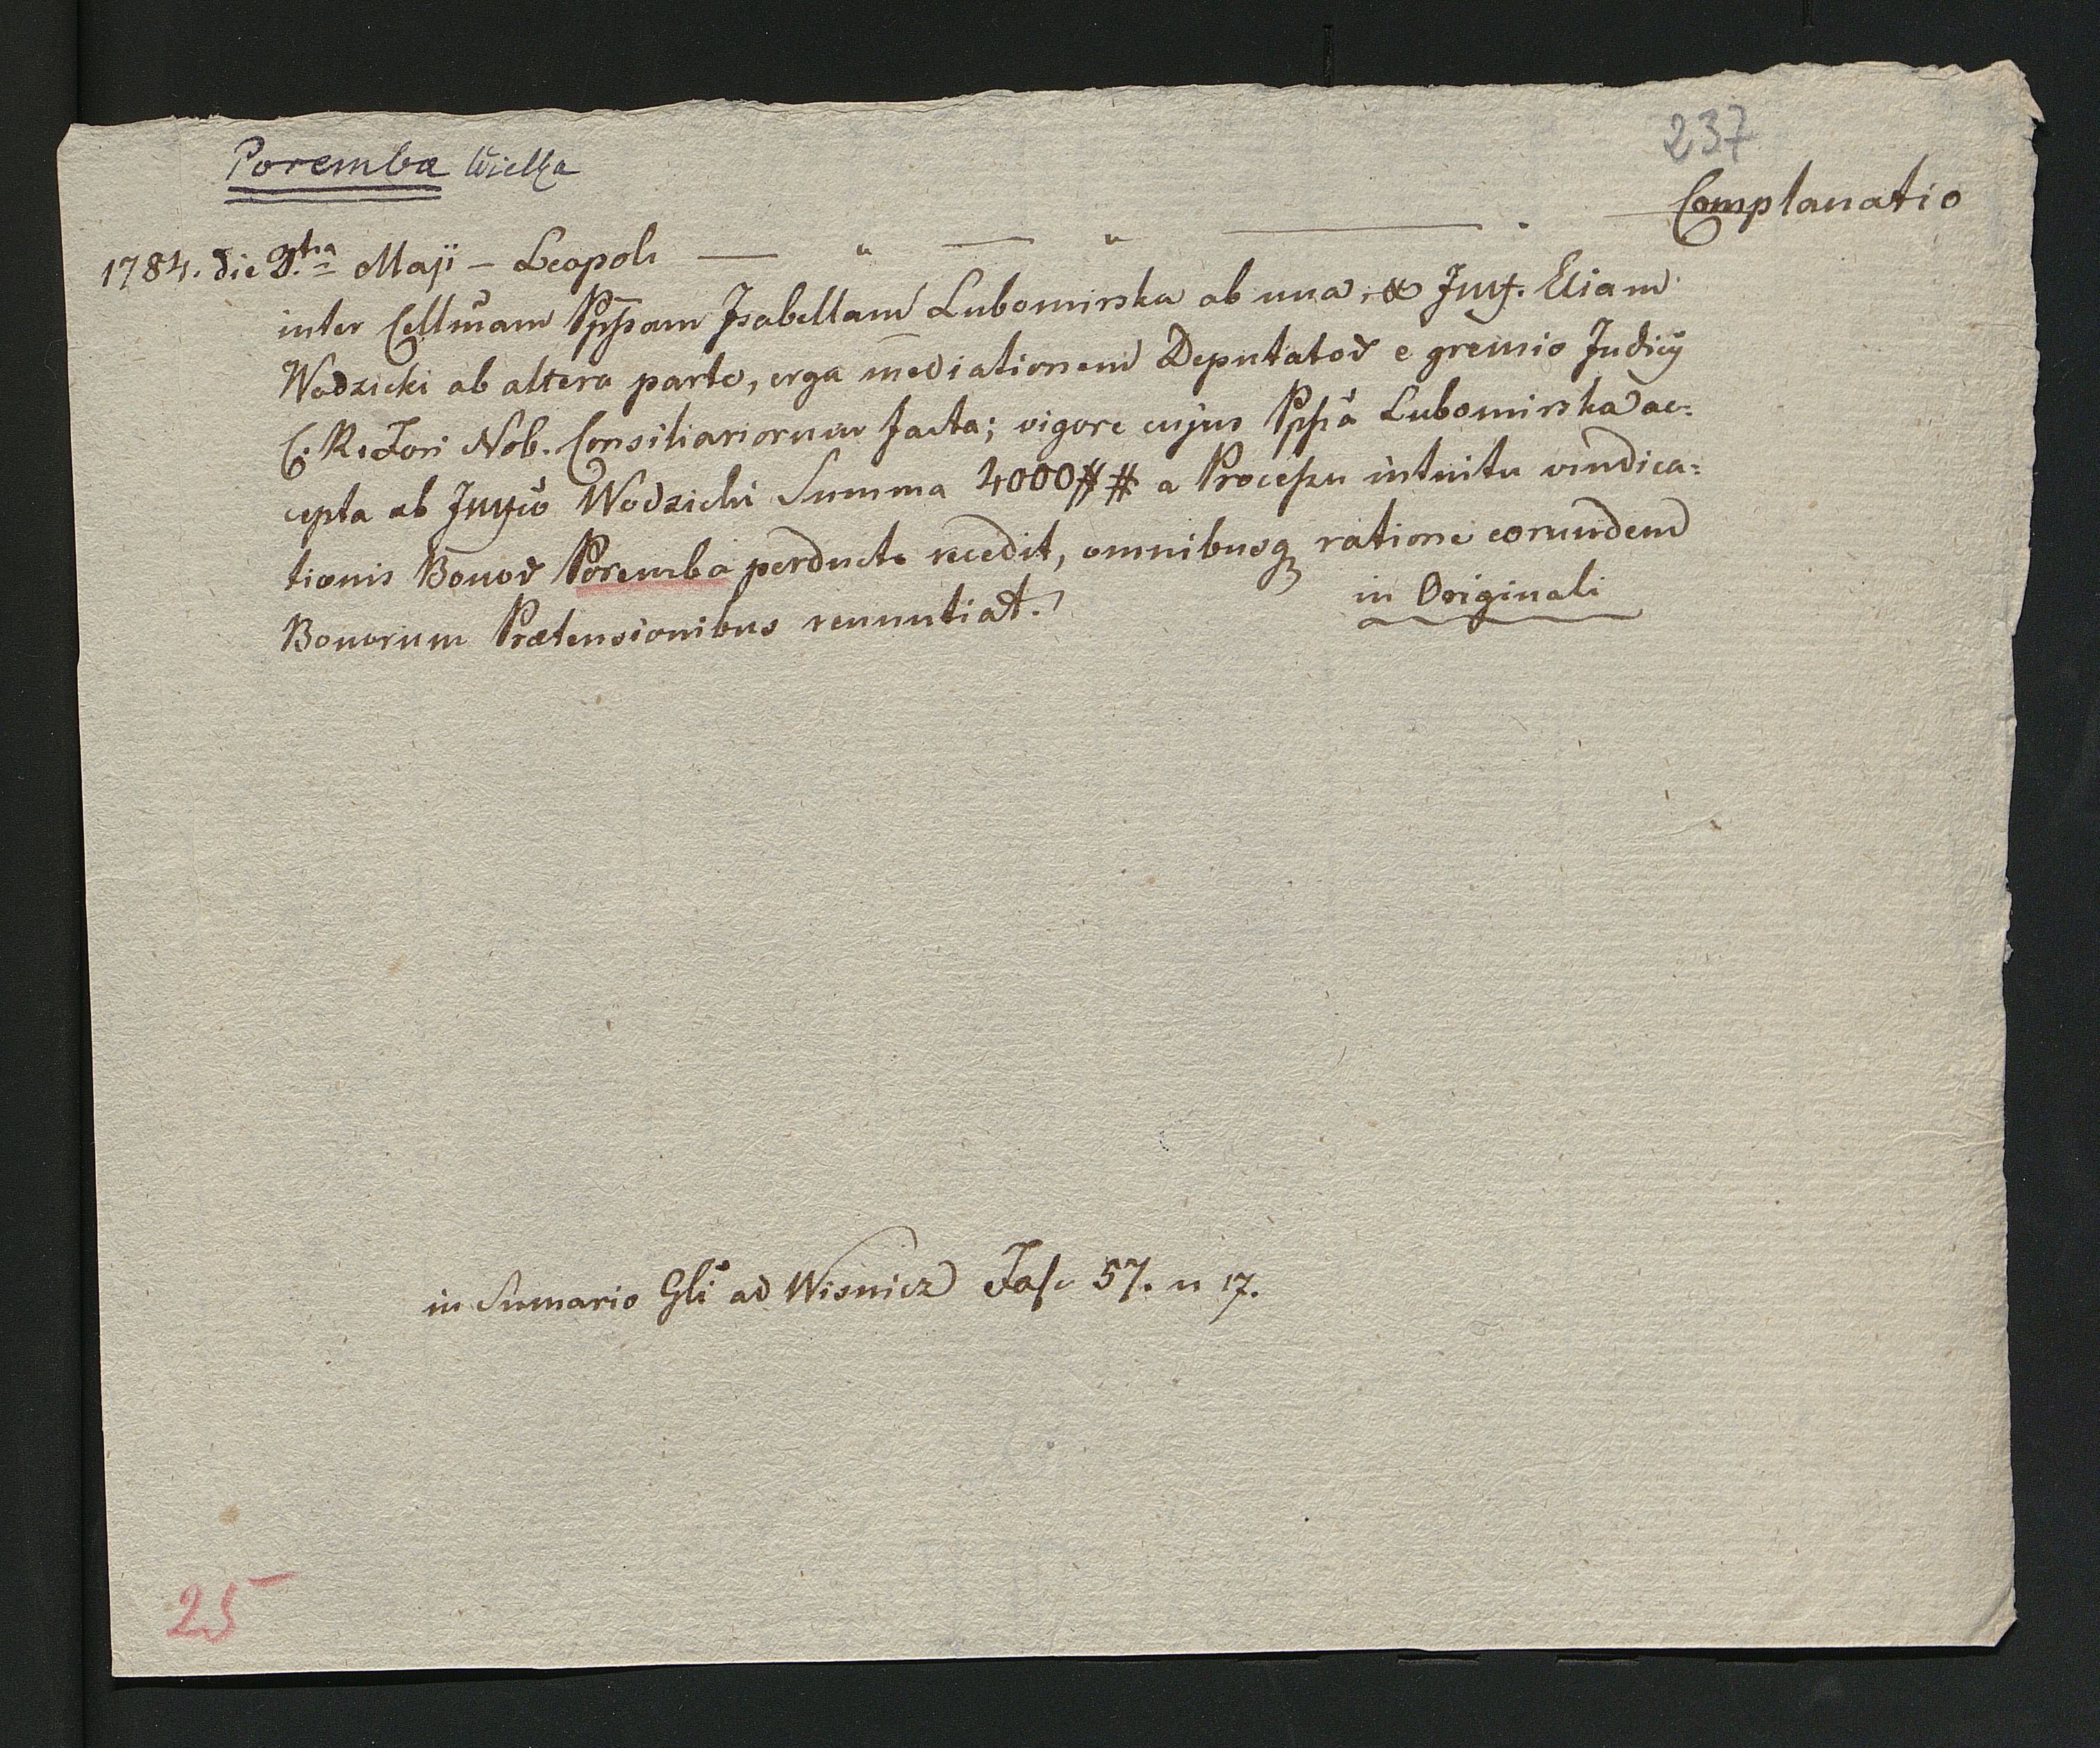 237
Poremba Wielka
Complanatio
1784. die 3tia Maji – Leopoli — " — " — .
inter Cellmam Pppam Isabellam Lubomirska ab una, & Eliam
Wodzicki ab altera parte, erga mediationem Deputator e gremio Judicij
C. R. Fori Nob. Consiliariorum facta; vigore cujus Pppa Lubomirska ac=
cepta ab Wodzicki Summa 4000## a Processu intuitu vindica=
tionis Bonor Poremba perducto recedit, omnibusq ratione eorundem
Bonorum Prætensionibus renuntiat.
in Originali
in Sumario Gli ad Wisnicz Fasc 57. n 17.
25